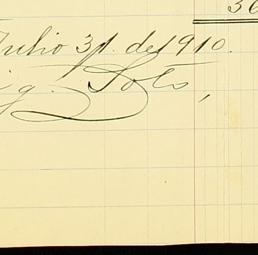 36
Julio 31. de 1910.
ig. Soto,